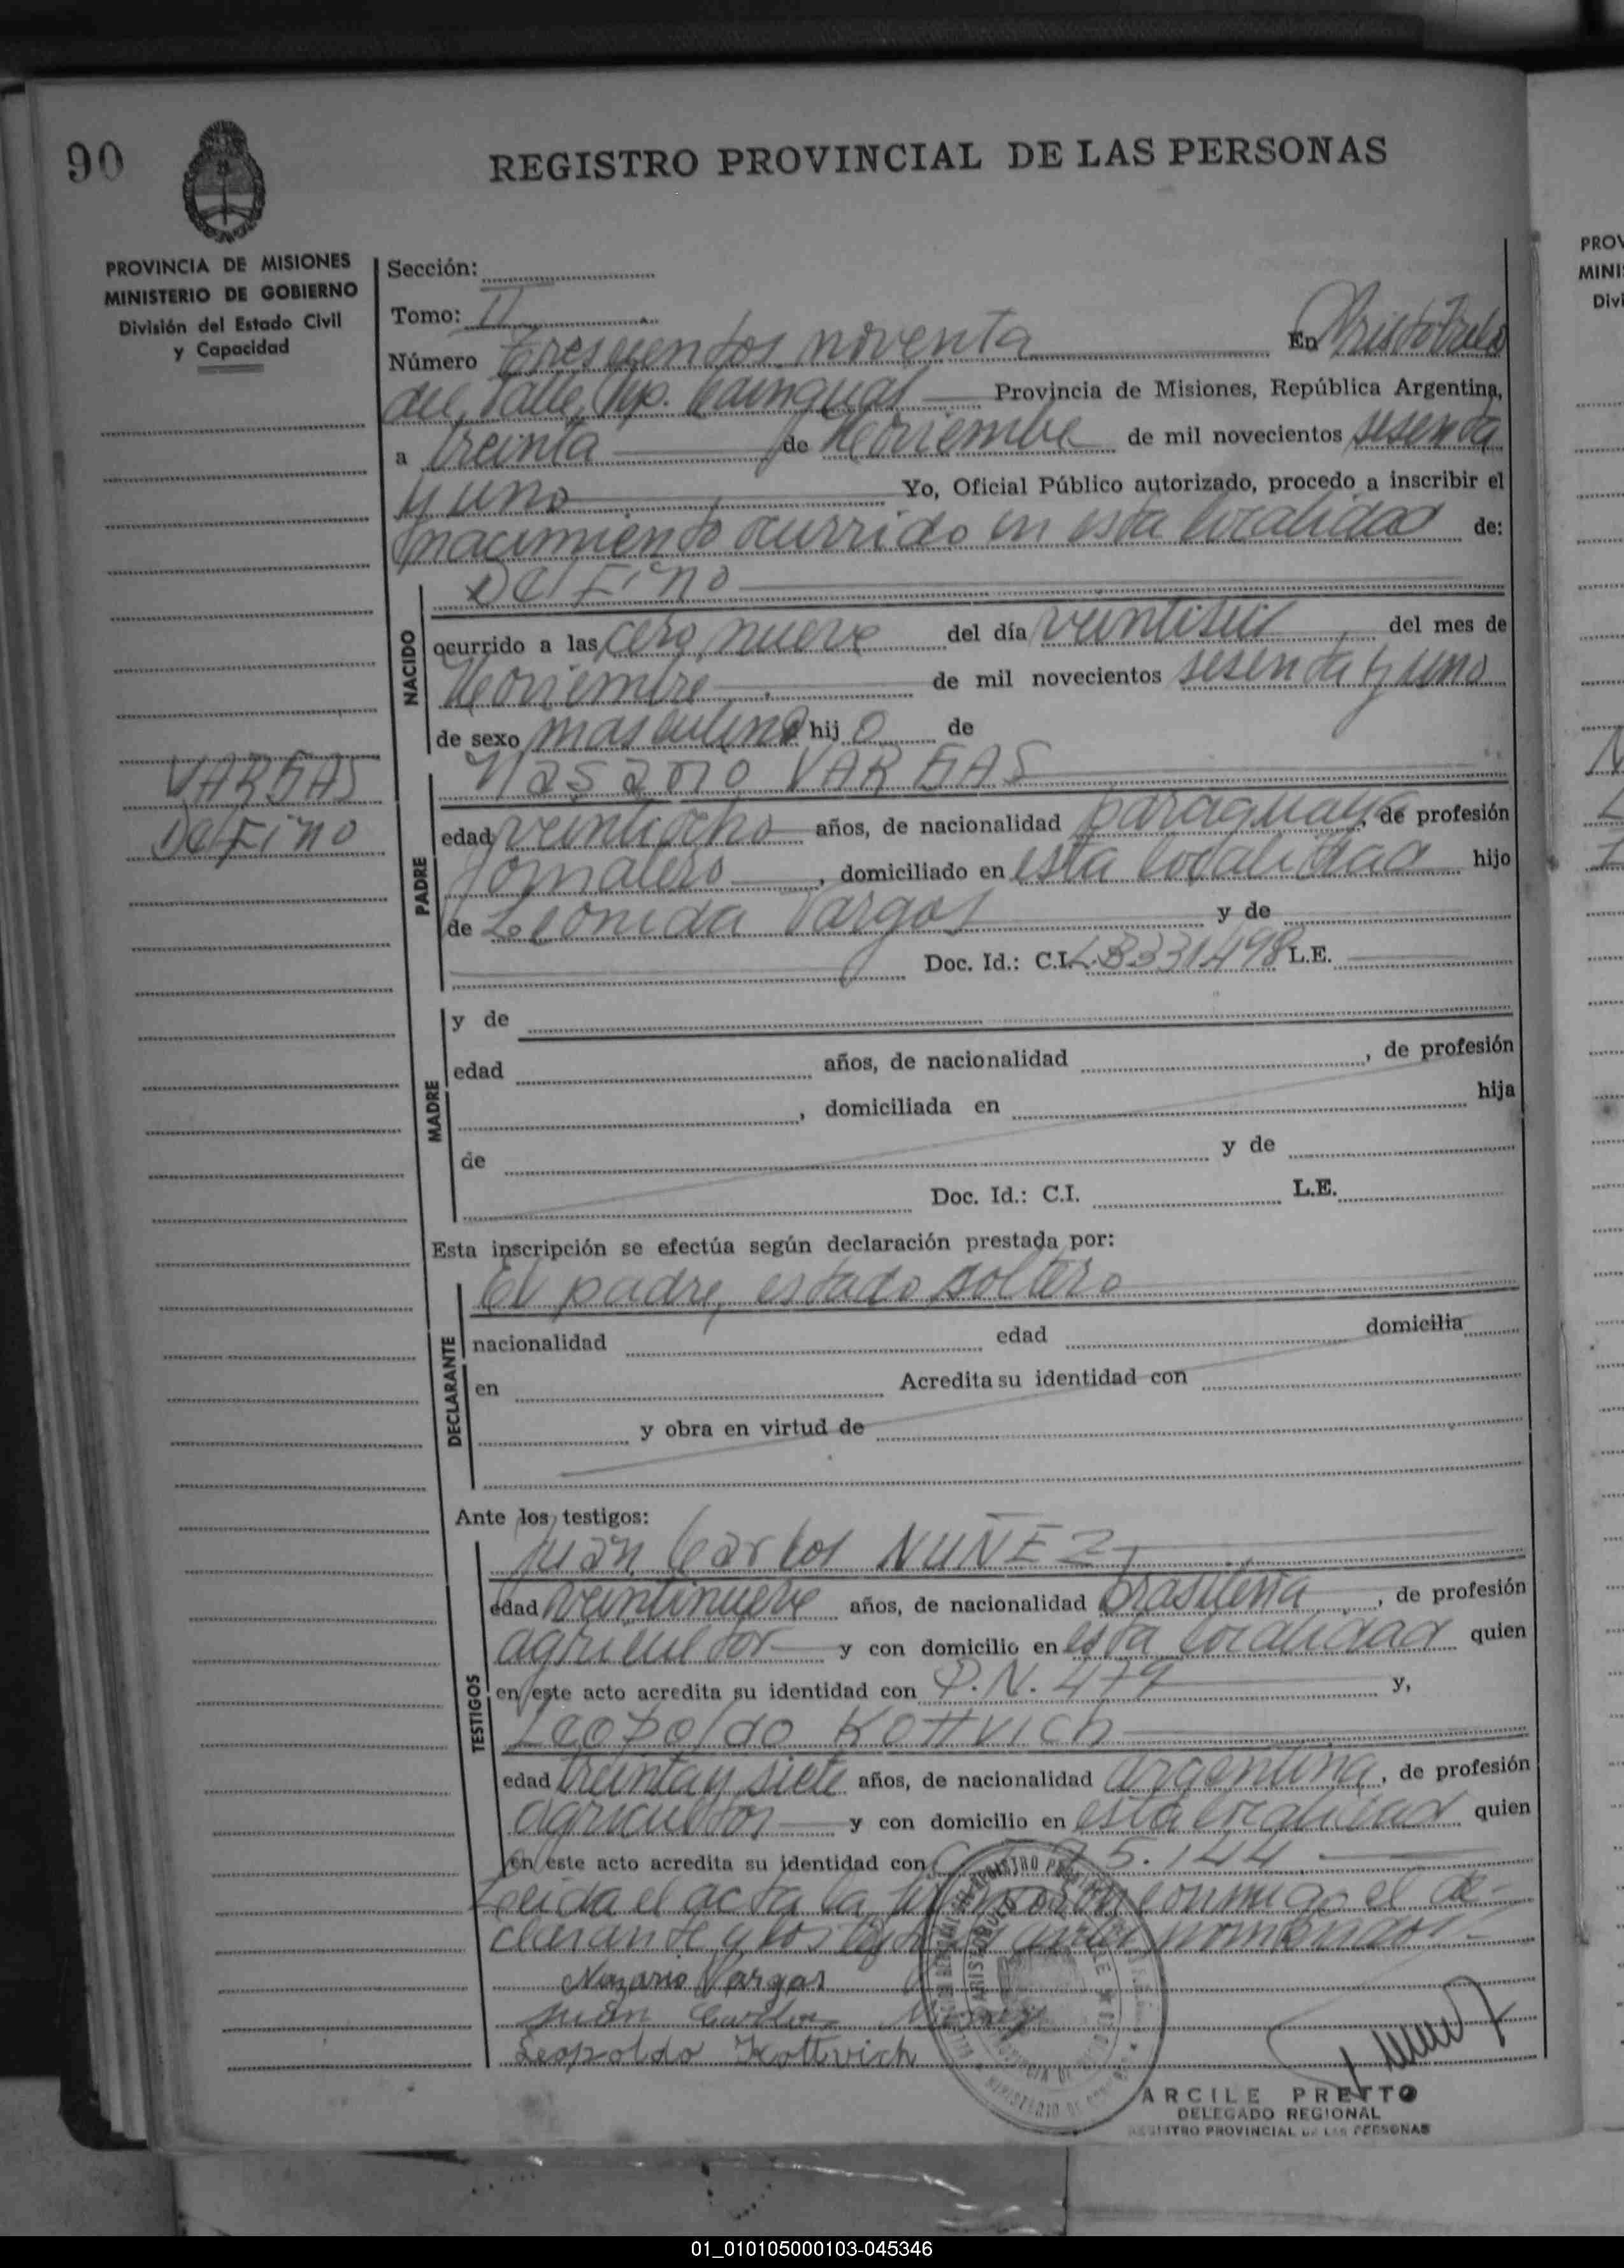 90
REGISTRO PROVINCIAL DE LAS PERSONAS
PROVINCIA DE MISIONES
MINISTERIO DE GOBIERNO
División del Estado Civil
y Capacidad
Sección:
Tomo: II
Número Trescientos noventa En Aristobulo
del Valle, Dep. Cainguas Provincia de Misiones, República Argentina,
a treinta de Noviembre de mil novecientos sesenta
y uno Yo, Oficial Público autorizado, procedo a inscribir el
nacimiento ocurrido en esta localidad de:
NACIDO
Delfino
ocurrido a las cero nueve del día veintiseis del mes de
Noviembre de mil novecientos sesenta y uno
de sexo masculino hij o de
VARGAS
Delfino
PADRE
Nasario VARGAS
edad veintiocho años, de nacionalidad paraguaya, de profesión
Jornalero, domiciliado en esta localidad hijo
de Leonida Vargas y de
Doc. Id.: C.I. 331498 L.E.
MADRE
y de
edad años, de nacionalidad , de profesión
, domiciliada en hija
de y de
Doc. Id.: C.I. L.E.
Esta inscripción se efectúa según declaración prestada por:
DECLARANTE
El padre, estado soltero
nacionalidad edad domicilia
en Acredita su identidad con
y obra en virtud de
Ante los testigos:
TESTIGOS
Juan Carlos NUÑEZ
edad veintinueve años, de nacionalidad brasileña, de profesión
agricultor y con domicilio en esta localidad quien
en este acto acredita su identidad con P.N. 479 y,
Leopoldo Kottvich
edad treinta y siete años, de nacionalidad argentina, de profesión
agricultor y con domicilio en esta localidad quien
en este acto acredita su identidad con 5.144
Leida el acta la firmaron conmigo el de-
clarante y los antes nombrados.-
Nazario Vargas
Juan Carlos Nuñez
Leopoldo Kottvich
ARCILE PRETTO
DELEGADO REGIONAL
REGISTRO PROVINCIAL DE LAS PERSONAS
PROV
MINI
Divi
01_010105000103-045346